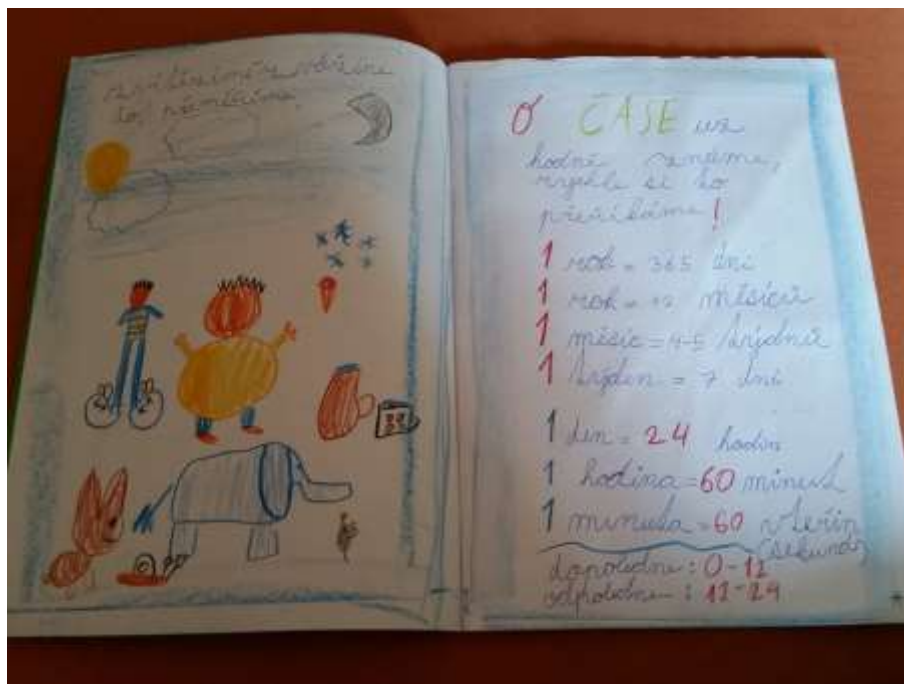 to
O ČASE už
hodně známe,
rychle si to
přeříkáme!
1 rok = 365 dní
1 rok = 12 měsíců
1 měsíc = 4-5 týdnů
1 týden = 7 dní
1 den = 24 hodin
1 hodina = 60 minut
1 minuta = 60 vteřin
(sekund)
dopoledne: 0-12
odpoledne: 12-24